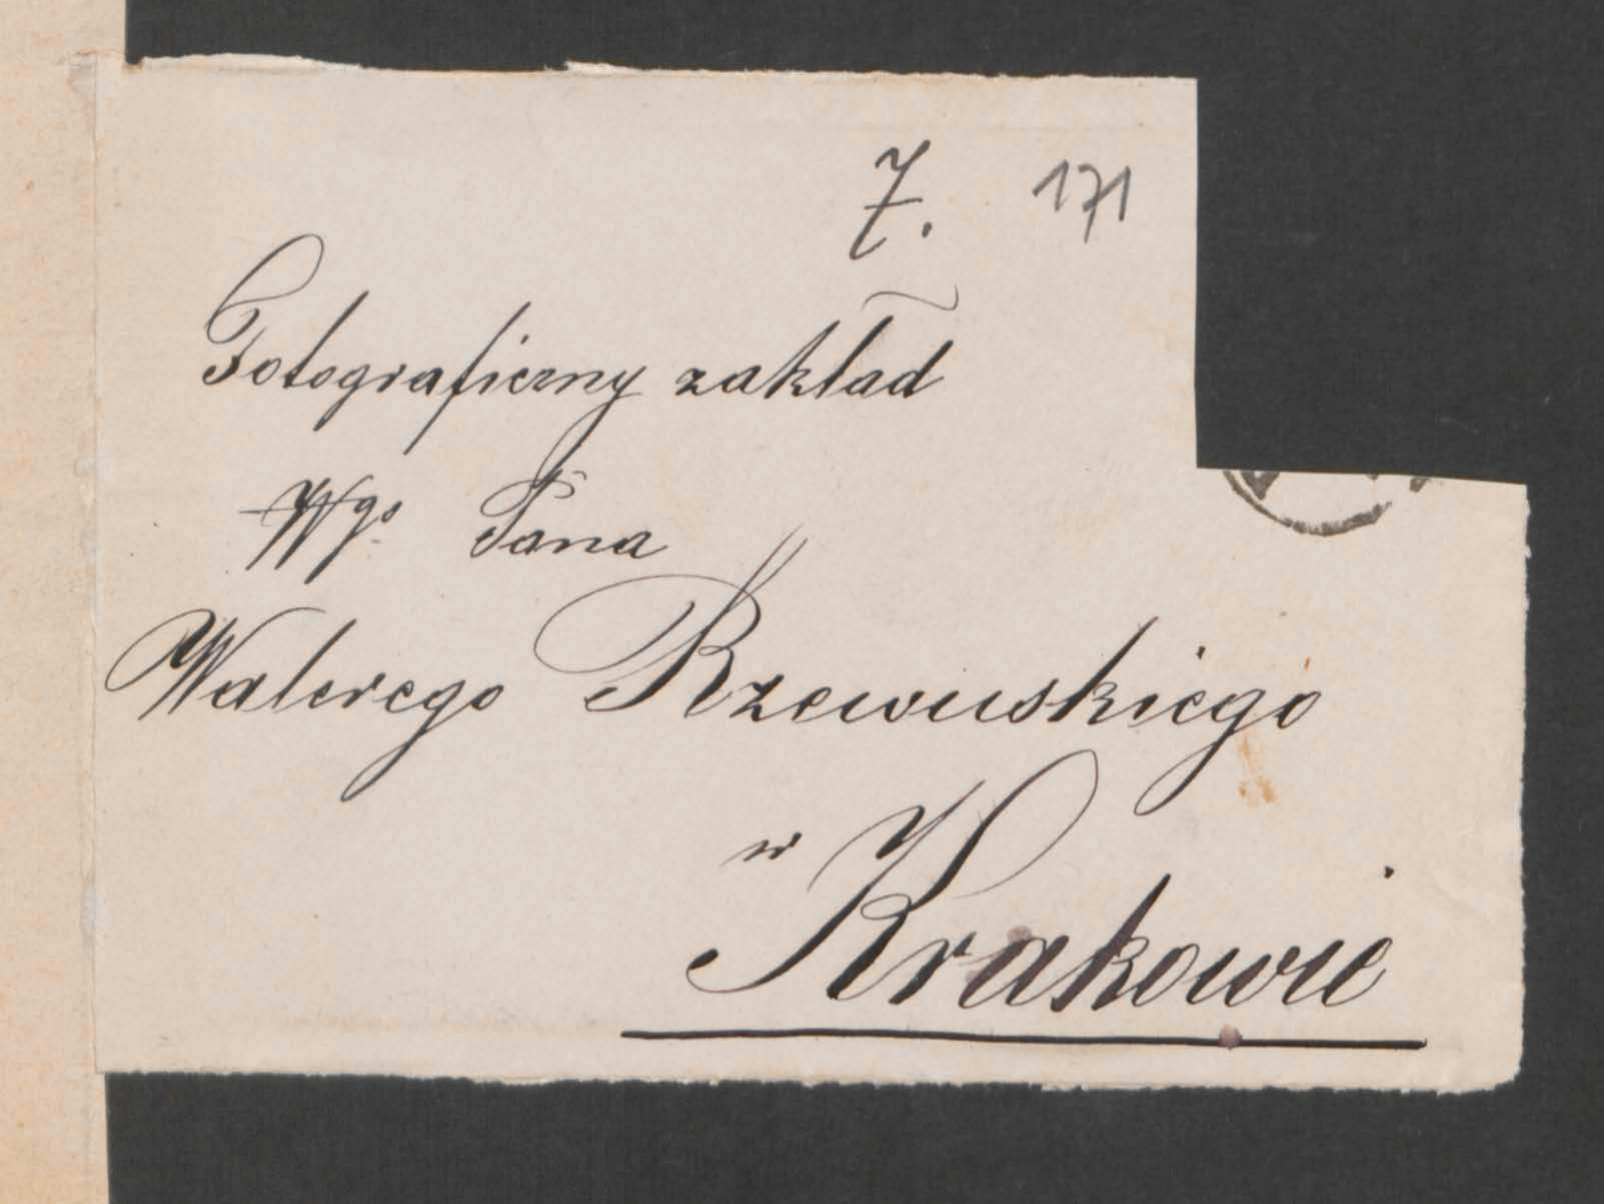 7. 171
Fotograficzny zakład
Wgo Pana
Walerego Rzewuskiego
w Krakowie